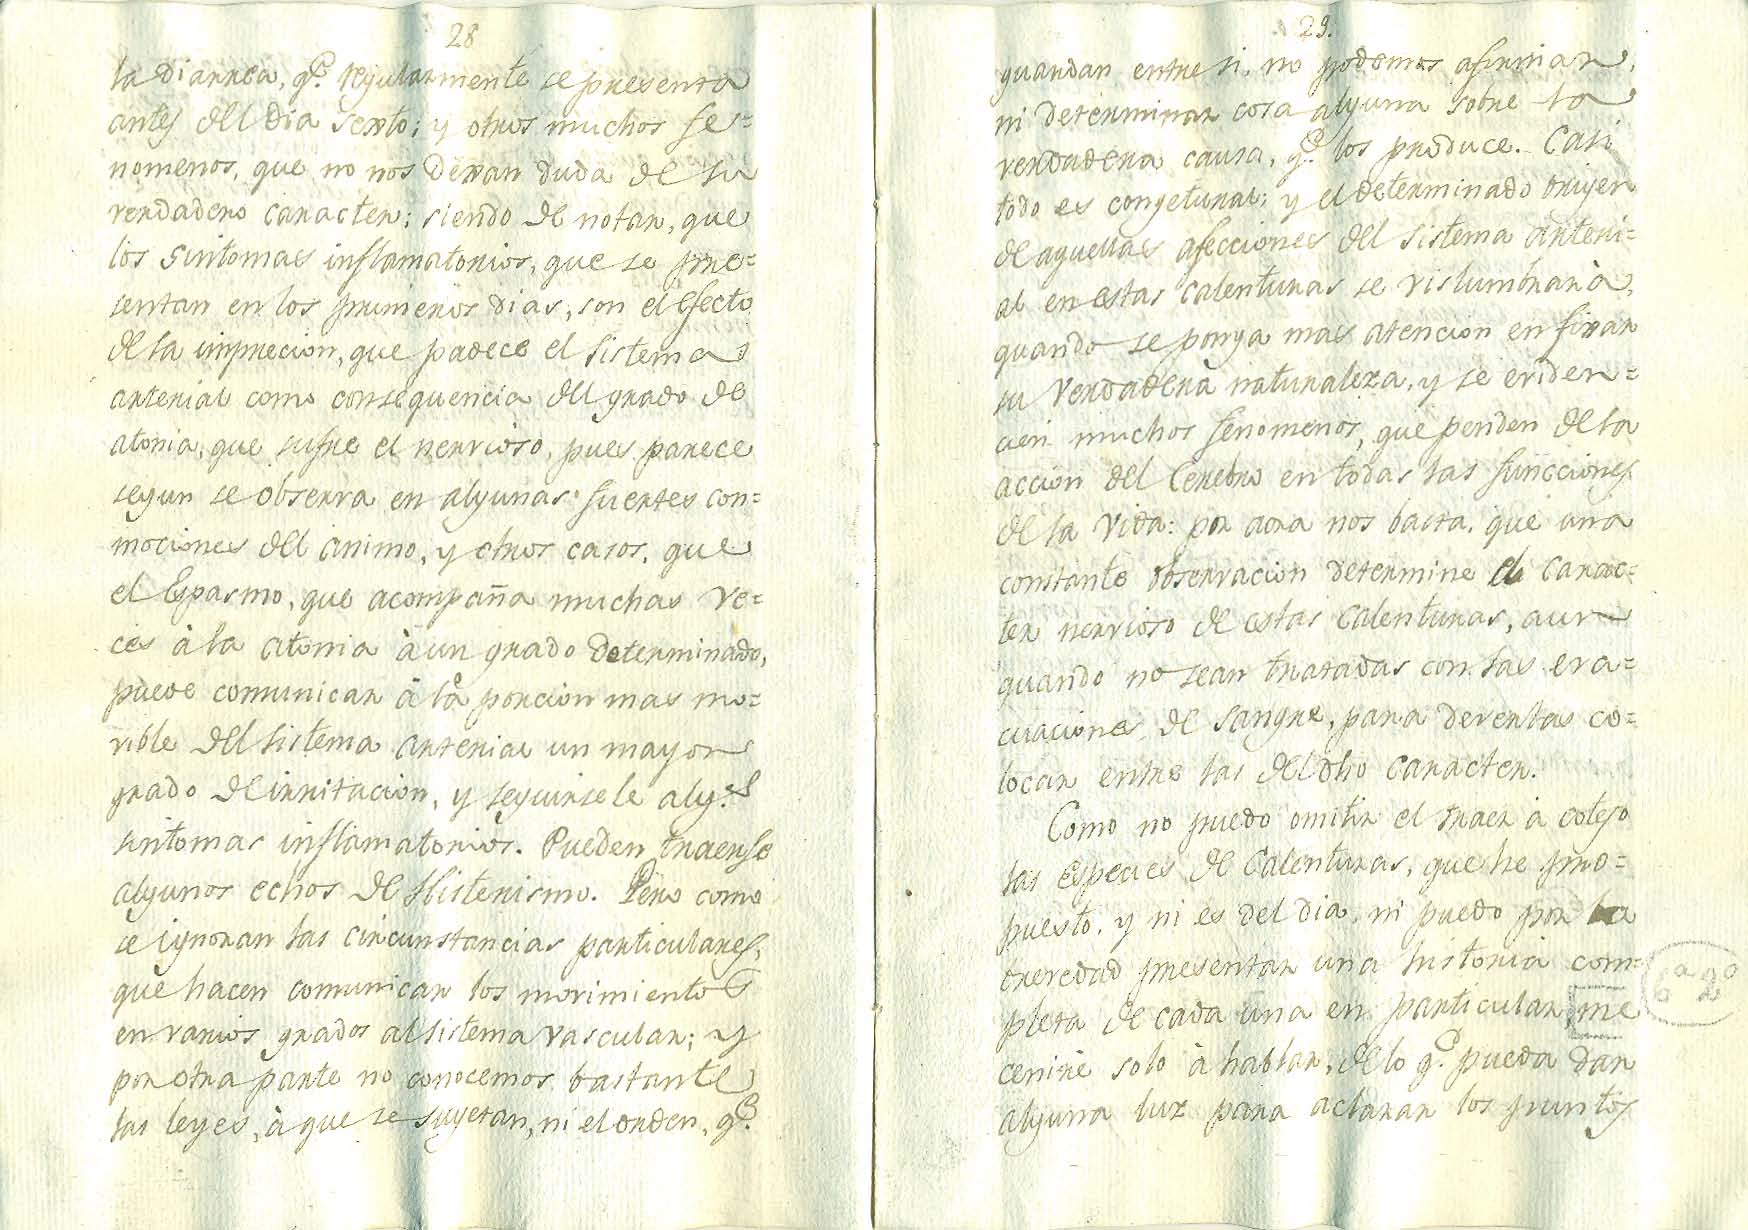 28
la diarrea, q.e regularmente se presenta
antes del dia sexto; y otros muchos fe=
nomenos, que no nos dexan duda de su
verdadero caracter; siendo de notar, que
los sintomas inflamatorios, que se pre=
sentan en los primeros dias, son el efecto
de la imprecion, que padece el sistema
arterial como consequencia del grado de
atonia, que sufre el nervioso, pues parece
segun se observa en algunas fuertes con=
mociones del animo, y otros casos, que
el Espasmo, que acompaña muchas ve=
ces à la atonia à un grado determinado,
puede comunicar à la porcion mas mo=
vible del sistema arterial un mayor
grado de irritacion, y seguirsele alg.s
sintomas inflamatorios. Pueden traerse
algunos echos de Histerismo. Pero como
se ignoran las circunstancias particulares,
que hacen comunicar los movimientos
en varios grados al sistema vascular; y
por otra parte no conocemos bastante
las leyes, à que se sugetan, ni el orden, q.e
29.
guardan entre si, no podemos afirmar,
ni determinar cosa alguna sobre la
verdadera causa, q.e los produce. Casi
todo es congetural; y el determinado origen
de aquellas afecciones del sistema arteri=
al en estas calenturas se vislumbrarà,
quando se ponga mas atencion en fixar
su verdadera naturaleza, y se eviden=
cien muchos fenomenos, que penden de la
accion del Cerebro en todas las funcciones
de la vida: por aora nos basta, que una
constante observacion determine el carac=
ter nervioso de estas calenturas, aun
quando no sean tratadas con las eva=
cuaciones de sangre, para deverlas co=
locar entre las del dho caracter.
Como no puedo omitir el traer à cotejo
las especies de Calenturas, que he pro=
puesto, y ni es del dia, ni puedo por la
brevedad presentar una historia com=
pleta de cada una en particular, me
ceñirè solo à hablar, de lo q.e pueda dar
alguna luz para aclarar los puntos